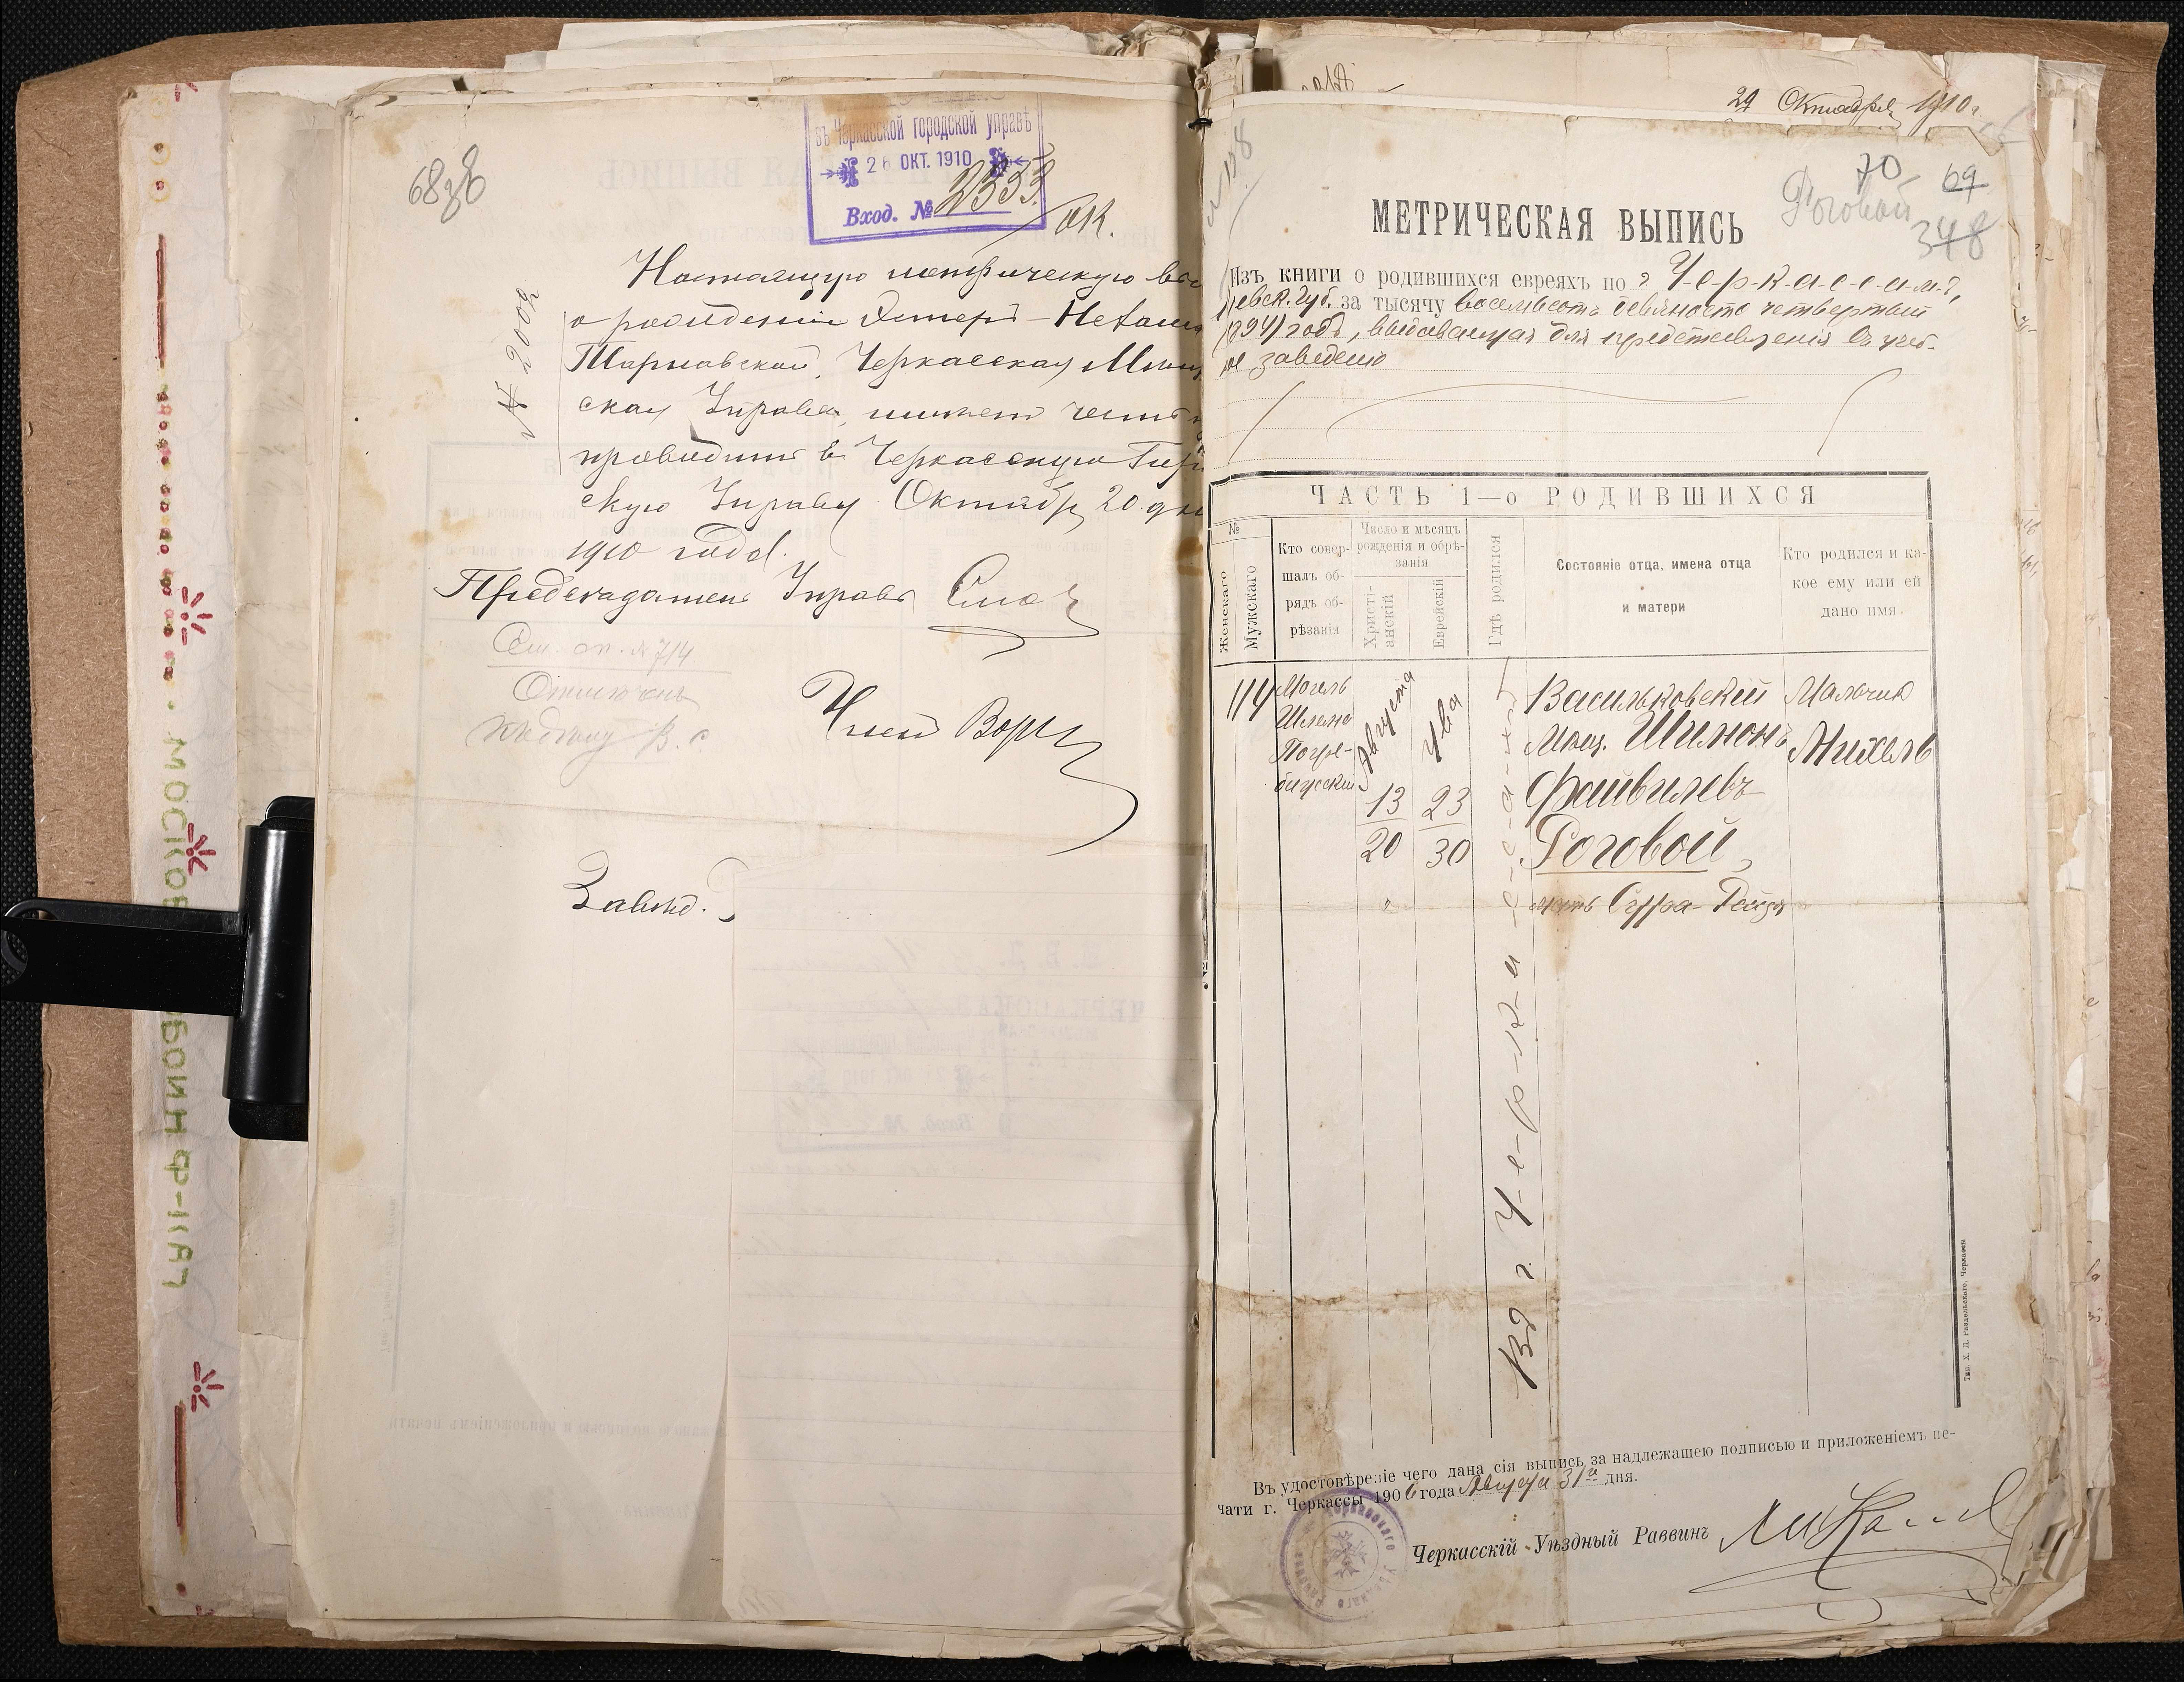 6838
въ Черкасской городской управѣ
26 ОКТ. 1910
Вход. № 2333
ОК.
№ 2008
Настоящую метрическую
о рождении Эстеръ-Нехамы
Тарнавской, Черкасская
ская Управа, имѣетъ честь
проводить въ Черкасскую
скую Управу. Октября 20 дня
1910 года.
Председатель Управы
См. оп. № 714
Членъ
Завид.
29 Октября 1910 г.
70 69
Роговой
348
МЕТРИЧЕСКАЯ ВЫПИСЬ
Изъ книги о родившихся евреяхъ по г. Ч-е-р-к-а-с-с-а-м-ъ,
Губ. за тысячу восемьсотъ девяносто четвертый
(1894) годъ, выдаваемая для представленія въ учеб-
заведеніе
ЧАСТЬ 1—о РОДИВШИХСЯ
№
Женскаго
Мужскаго
Кто совер-
шалъ об-
рядъ об-
рѣзанія
Число и мѣсяцъ
рожденія и обрѣ-
занія
Христі-
анскій
Еврейскій
Гдѣ родился
Состояніе отца, имена отца
и матери
Кто родился и ка-
кое ему или ей
дано имя.
114
Могель
Шлема
Погре-
бисскій
Августа
13
20
Ува
23
30
Въ г. Ч-е-р-к-а-с-с-а-х-ъ
Васильковскій
Мѣщ. Шимонъ
Файвилевъ
Роговой,
мать Сурра-Рейзя
Мальчик
Михель
Тип. Х. Д. Раздельскаго, Черкассы
Въ удостовѣреніе чего дана сія выпись за надлежащею подписью и приложеніемъ пе-
чати г. Черкассы 1906 года Августа 31го дня.
Черкасскій Уѣздный Раввинъ